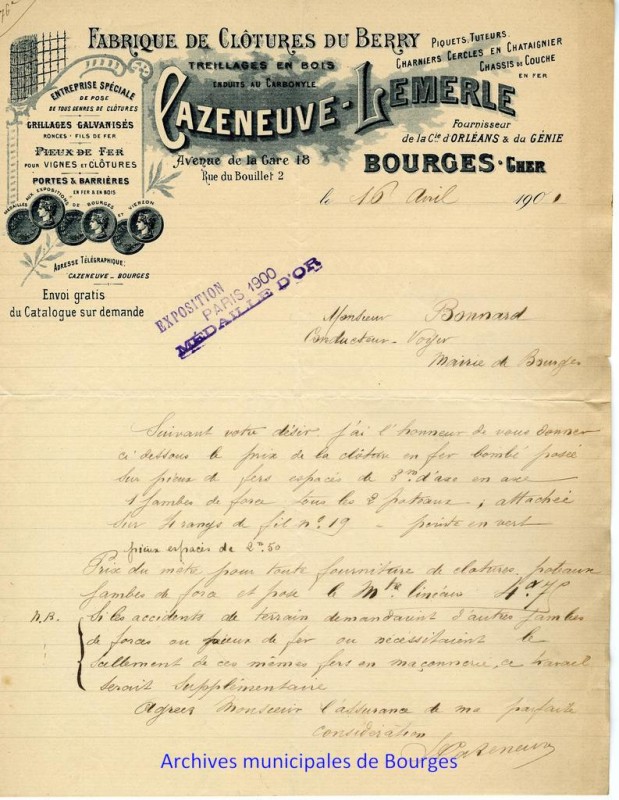 FABRIQUE DE CLÔTURES DU BERRY
TREILLAGES EN BOIS
ENDUITS AU CARBONYLE
CAZENEUVE-LEMERLE
PIQUETS, TUTEURS,
CHARNIERS CERCLES EN CHATAIGNIER
CHASSIS DE COUCHE
EN FER
Fournisseur
de la Cie d'ORLÉANS & du GÉNIE
Avenue de la Gare 18
Rue du Bouillet 2
BOURGES · CHER
ENTREPRISE SPÉCIALE
DE POSE
DE TOUS GENRES DE CLÔTURES
GRILLAGES GALVANISÉS
RONCES - FILS DE FER
PIEUX DE FER
POUR VIGNES ET CLÔTURES
PORTES & BARRIÈRES
EN FER & EN BOIS
MÉDAILLES AUX EXPOSITIONS DE BOURGES ET VIERZON
ADRESSE TÉLÉGRAPHIQUE:
CAZENEUVE - BOURGES
Envoi gratis
du Catalogue sur demande
le 16 Avril 1901
EXPOSITION
PARIS 1900
MÉDAILLE D'OR
Monsieur Bonnard
Conducteur-Voyer
Mairie de Bourges
Suivant votre désir j'ai l'honneur de vous donner
ci dessous le prix de la clôture en fer bombé posée
sur pieux de fers espacés de 3m d'axe en axe
1 jambes de force tous les 2 poteaux, attachée
sur 4 rangs de fil n° 19 - peinte en vert
pieux espacés de 2m50
Prix du mètre pour toute fourniture de clotures, poteaux
jambes de force et pose le Mtre linéaire 4f 75
N.B. Si les accidents de terrain demandaient d'autres jambes
de forces ou pieux de fer ou nécessitaient le
scellement de ces mêmes fers en maçonnerie, ce travail
serait supplémentaire
Agréez Monsieur l'assurance de ma parfaite
considération
Cazeneuve
Archives municipales de Bourges